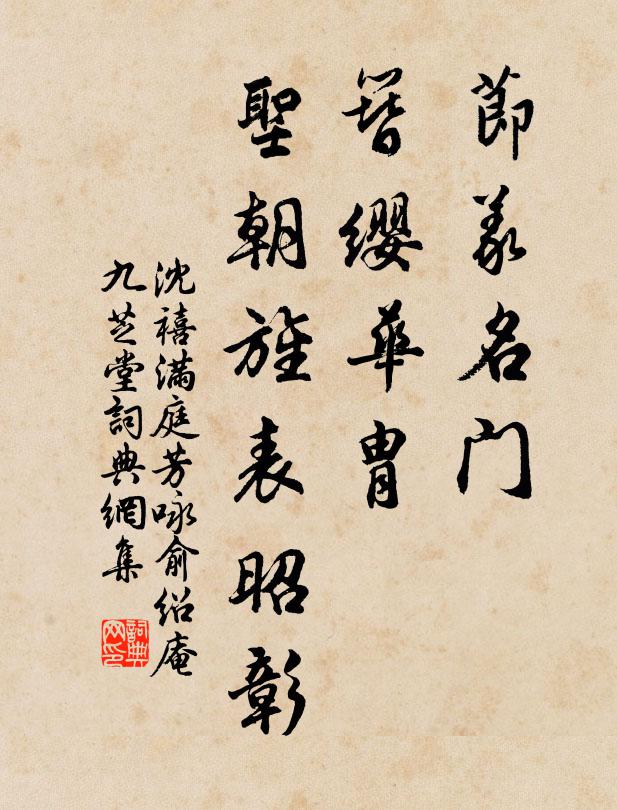 節義名門
簪纓華冑
聖朝旌表昭彰
沈禧滿庭芳咏俞紹庵
九芝堂詞典網集
詞典網印